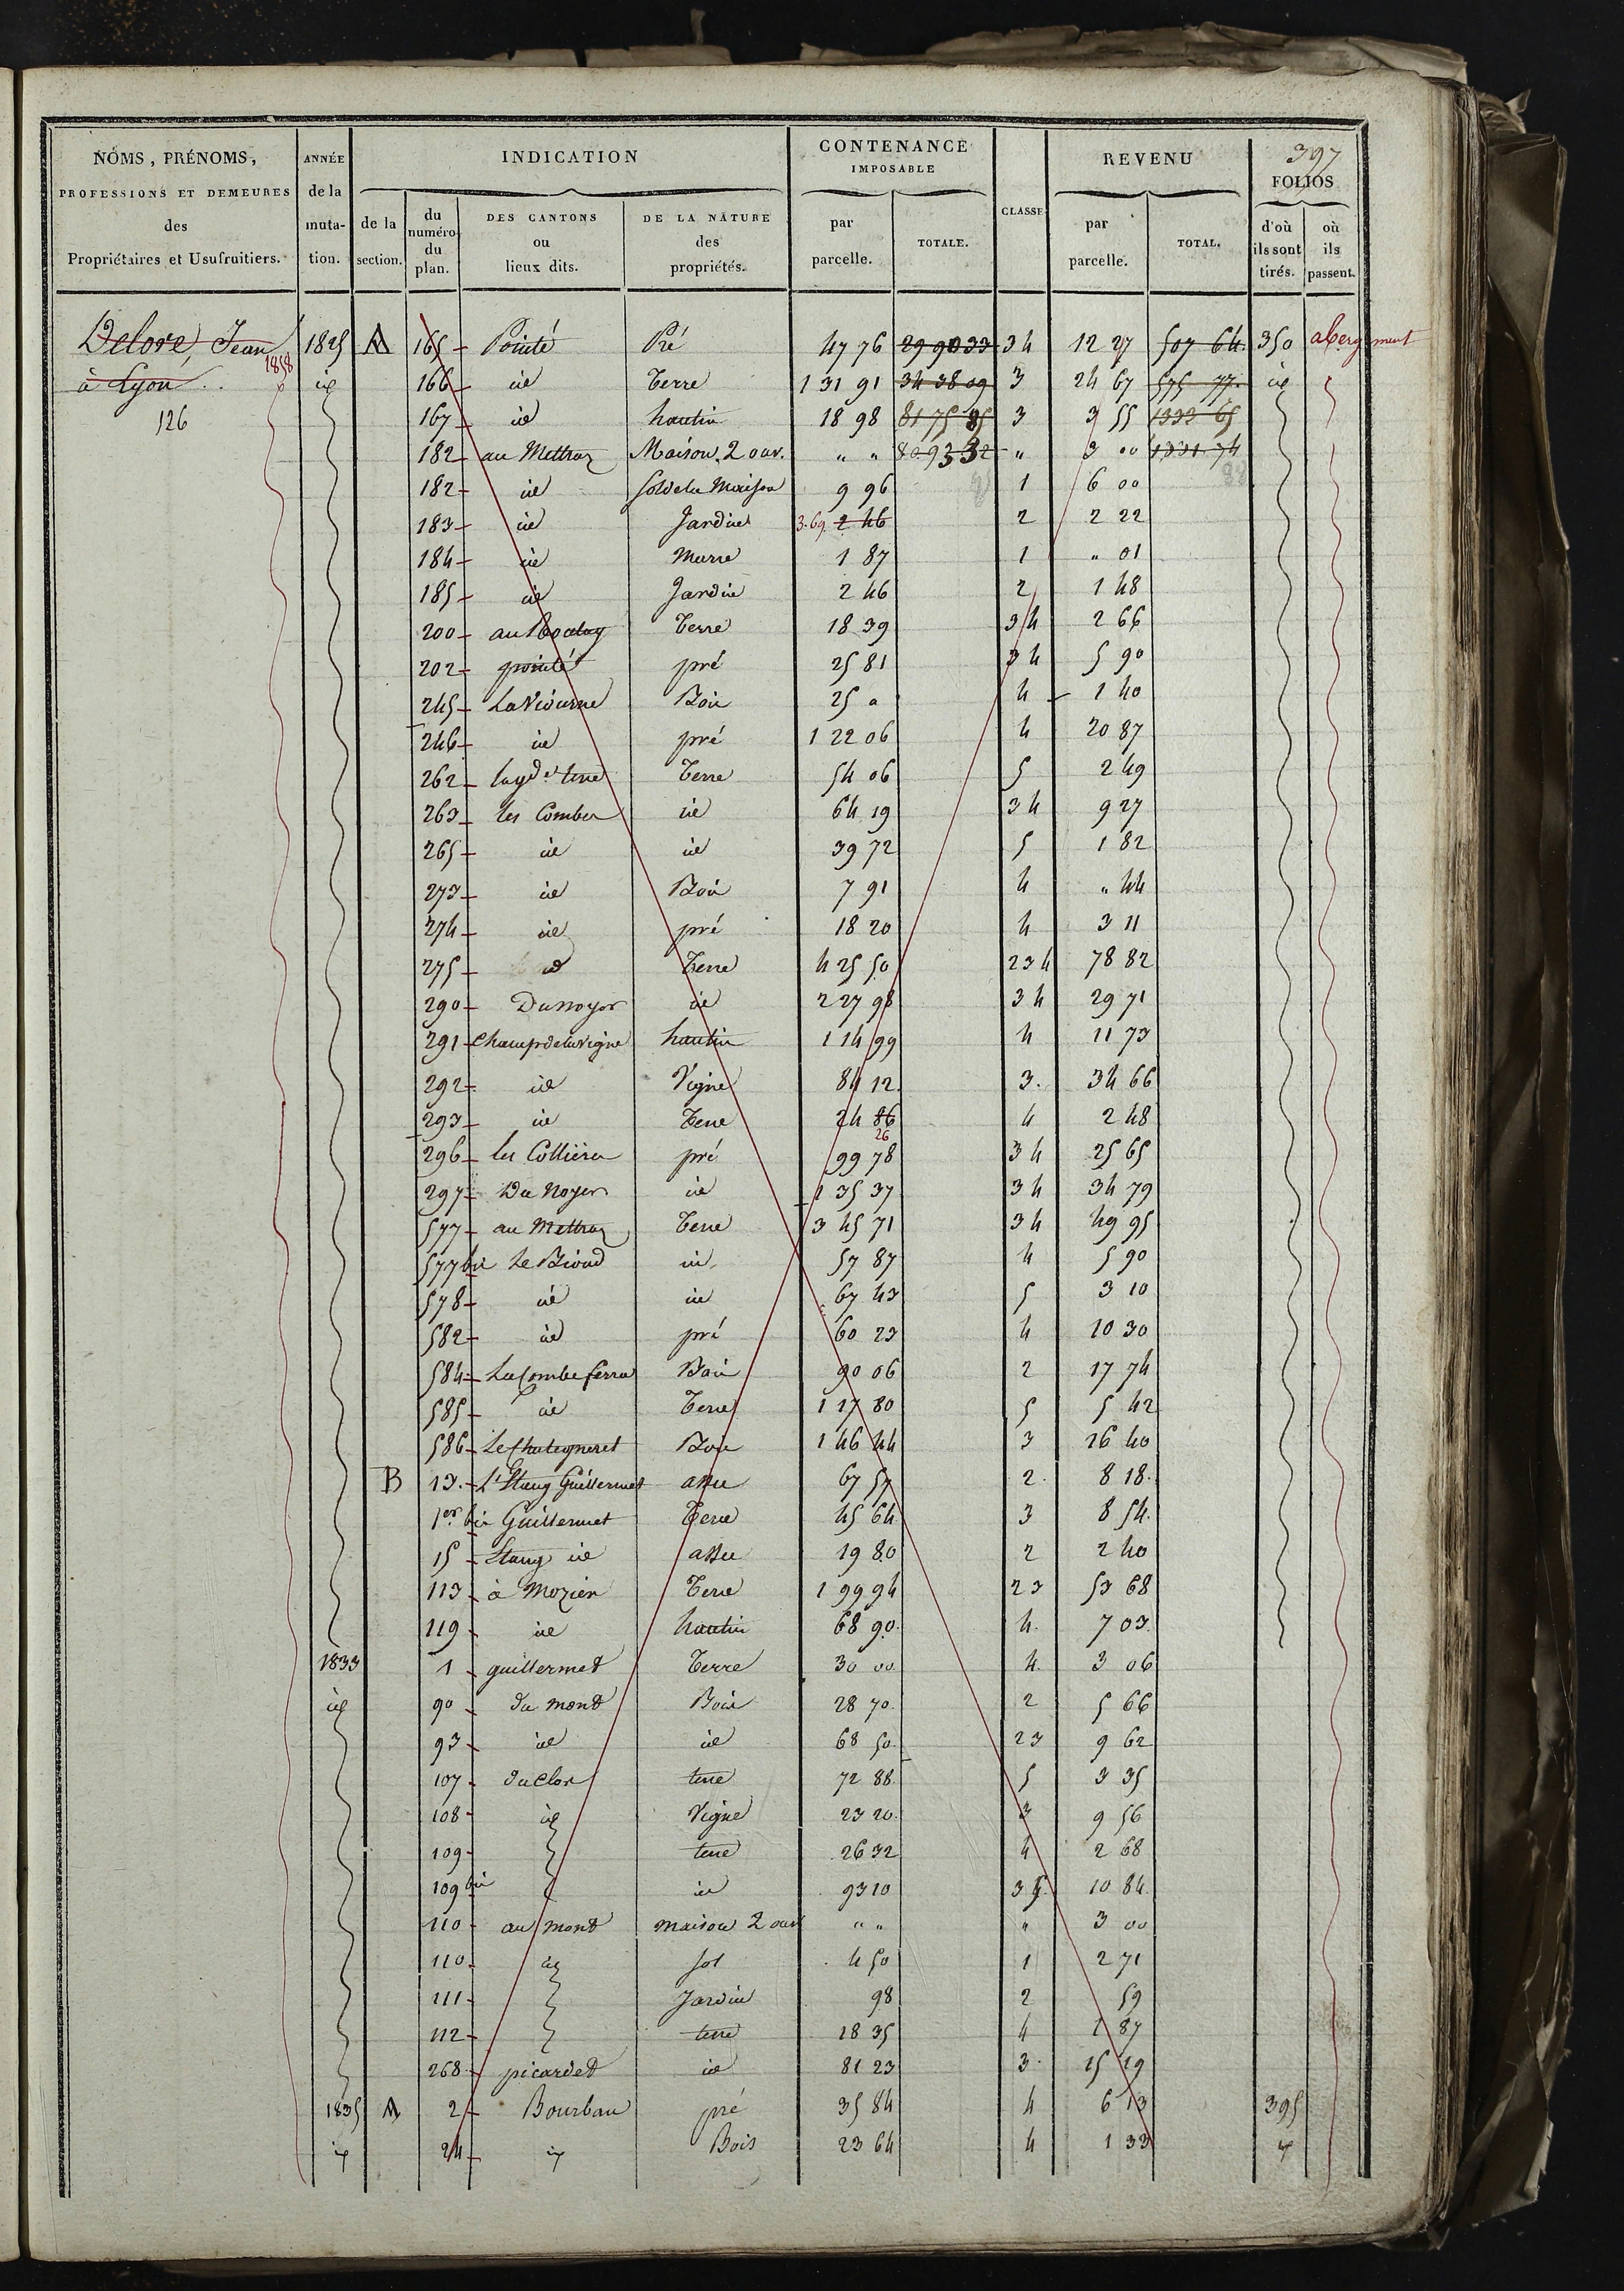 397
NOMS, PRÉNOMS, PROFESSIONS ET DEMEURES des Propriétaires et Usufruitiers. | ANNÉE de la muta- tion. | INDICATION de la section. | du numéro du plan. | DES CANTONS ou lieux dits. | DE LA NATURE des propriétés. | CONTENANCE IMPOSABLE par parcelle. | TOTALE. | CLASSE | REVENU par parcelle. | TOTAL. | FOLIOS d'où ils sont tirés. | où ils passent.
Delore, Jean 1858 | 1825 | A | 165 | Pointé | Pré | 47 76 | 29 90 33 | 3 4 | 12 27 | 507 64 | 350 | abergement
à Lyon | id | 166 | id | Terre | 1 31 91 | 34 38 09 | 3 | 24 67 | 575 77 | id
126 | 167 | id | hautin | 18 98 | 81 75 85 | 3 | 3 55 | 1333 65
182 | au Mettraz | Maison, 2 ouv. | " " | 80 93 32 | " | 3 00 | 1331 74
182 | id | Sol de la Maison | 9 96 | 1 | 6 00
183 | id | Jardin | 3.69 2 46 | 2 | 2 22
184 | id | Murre | 1 87 | 1 | " 01
185 | id | Jardin | 2 46 | 2 | 1 48
200 | au | Terre | 18 39 | 3 4 | 2 66
202 | pointé | pré | 25 81 | 3 4 | 5 90
245 | La Viourne | Bois | 25 " | 4 | 1 40
246 | id | pré | 1 22 06 | 4 | 20 87
262 | la gde terre | Terre | 54 06 | 5 | 2 49
263 | les Combes | id | 64 19 | 3 4 | 9 27
265 | id | id | 39 72 | 5 | 1 82
273 | id | Bois | 7 91 | 4 | " 44
274 | id | pré | 18 20 | 4 | 3 11
275 | id | Terre | 4 25 50 | 2 3 4 | 78 82
290 | Du noyer | id | 2 27 98 | 3 4 | 29 71
291 | Champ de la vigne | hautin | 1 14 99 | 4 | 11 73
292 | id | Vigne | 84 12 | 3. | 34 66
293 | id | Terre | 24 86 26 | 4 | 2 48
296 | les Collières | pré | 99 78 | 3 4 | 25 65
297 | Du Noyer | id | 1 35 37 | 3 4 | 34 79
577 | au Mettraz | Terre | 3 45 71 | 3 4 | 49 95
577 bis | Le Bioud | id | 57 87 | 4 | 5 90
578 | id | id | 67 43 | 5 | 3 10
582 | id | pré | 60 23 | 4 | 10 30
584 | La Combe ferra | Bois | 90 06 | 2 | 17 74
585 | id | Terre | 1 17 80 | 5 | 5 42
586 | Le Chategneret | Bois | 1 46 44 | 3 | 16 40
B | 13. | L'Etang Guillermet | assec | 67 57 | 2. | 8 18.
1er bis | Guillermet | Terre | 45 64 | 3 | 8 54.
15 | Etang id | assec | 19 80 | 2 | 2 40
113 | à Mozier | Terre | 1 99 94 | 2 3 | 53 68
119 | id | hautin | 68 90. | 4. | 7 03.
1833 | 1 | guillermet | Terre | 30 00 | 4. | 3 06
id | 90 | du mont | Bois | 28 70. | 2 | 5 66
93 | id | id | 68 50. | 2 3 | 9 62
107 | du clos | terre | 72 88. | 5 | 3 35
108 | id | Vigne | 23 20. | 3 | 9 56
109 | terre | 26 32 | 4 | 2 68
109 bis | id | 93 10 | 3 5. | 10 84
110 | au mont | maison 2 ouv | " " | " | 3 00
110 | id | sol | 4 50 | 1 | 2 71
111 | Jardin | 98 | 2 | 59
112 | terre | 18 35 | 4 | 1 87
268 | picardet | id | 81 23 | 3. | 15 19
1835 | A | 2 | Bourbau | pré | 35 84 | 4 | 6 13 | 395
id | 24 | id | Bois | 23 64 | 4 | 1 33 | id